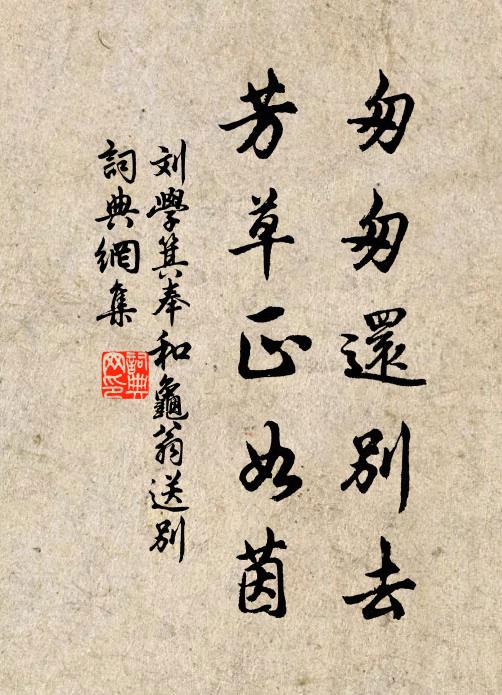 匆匆還別去
芳草正如茵
刘學箕奉和龜翁送别
詞典網集
詞典網印